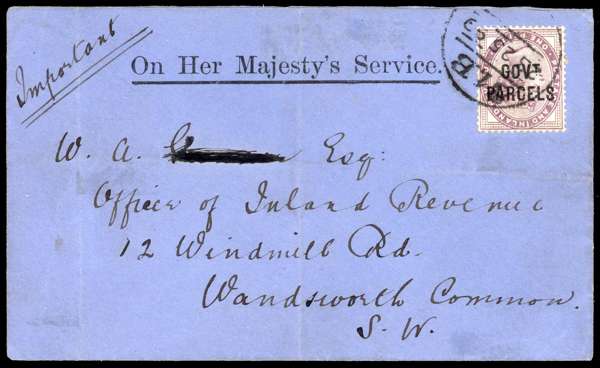 Important
On Her Majesty's Service.
GOVT
PARCELS
W. A. Esq:
Office of Inland Revenue
12 Windmill Rd.
Wandsworth Common.
S. W.